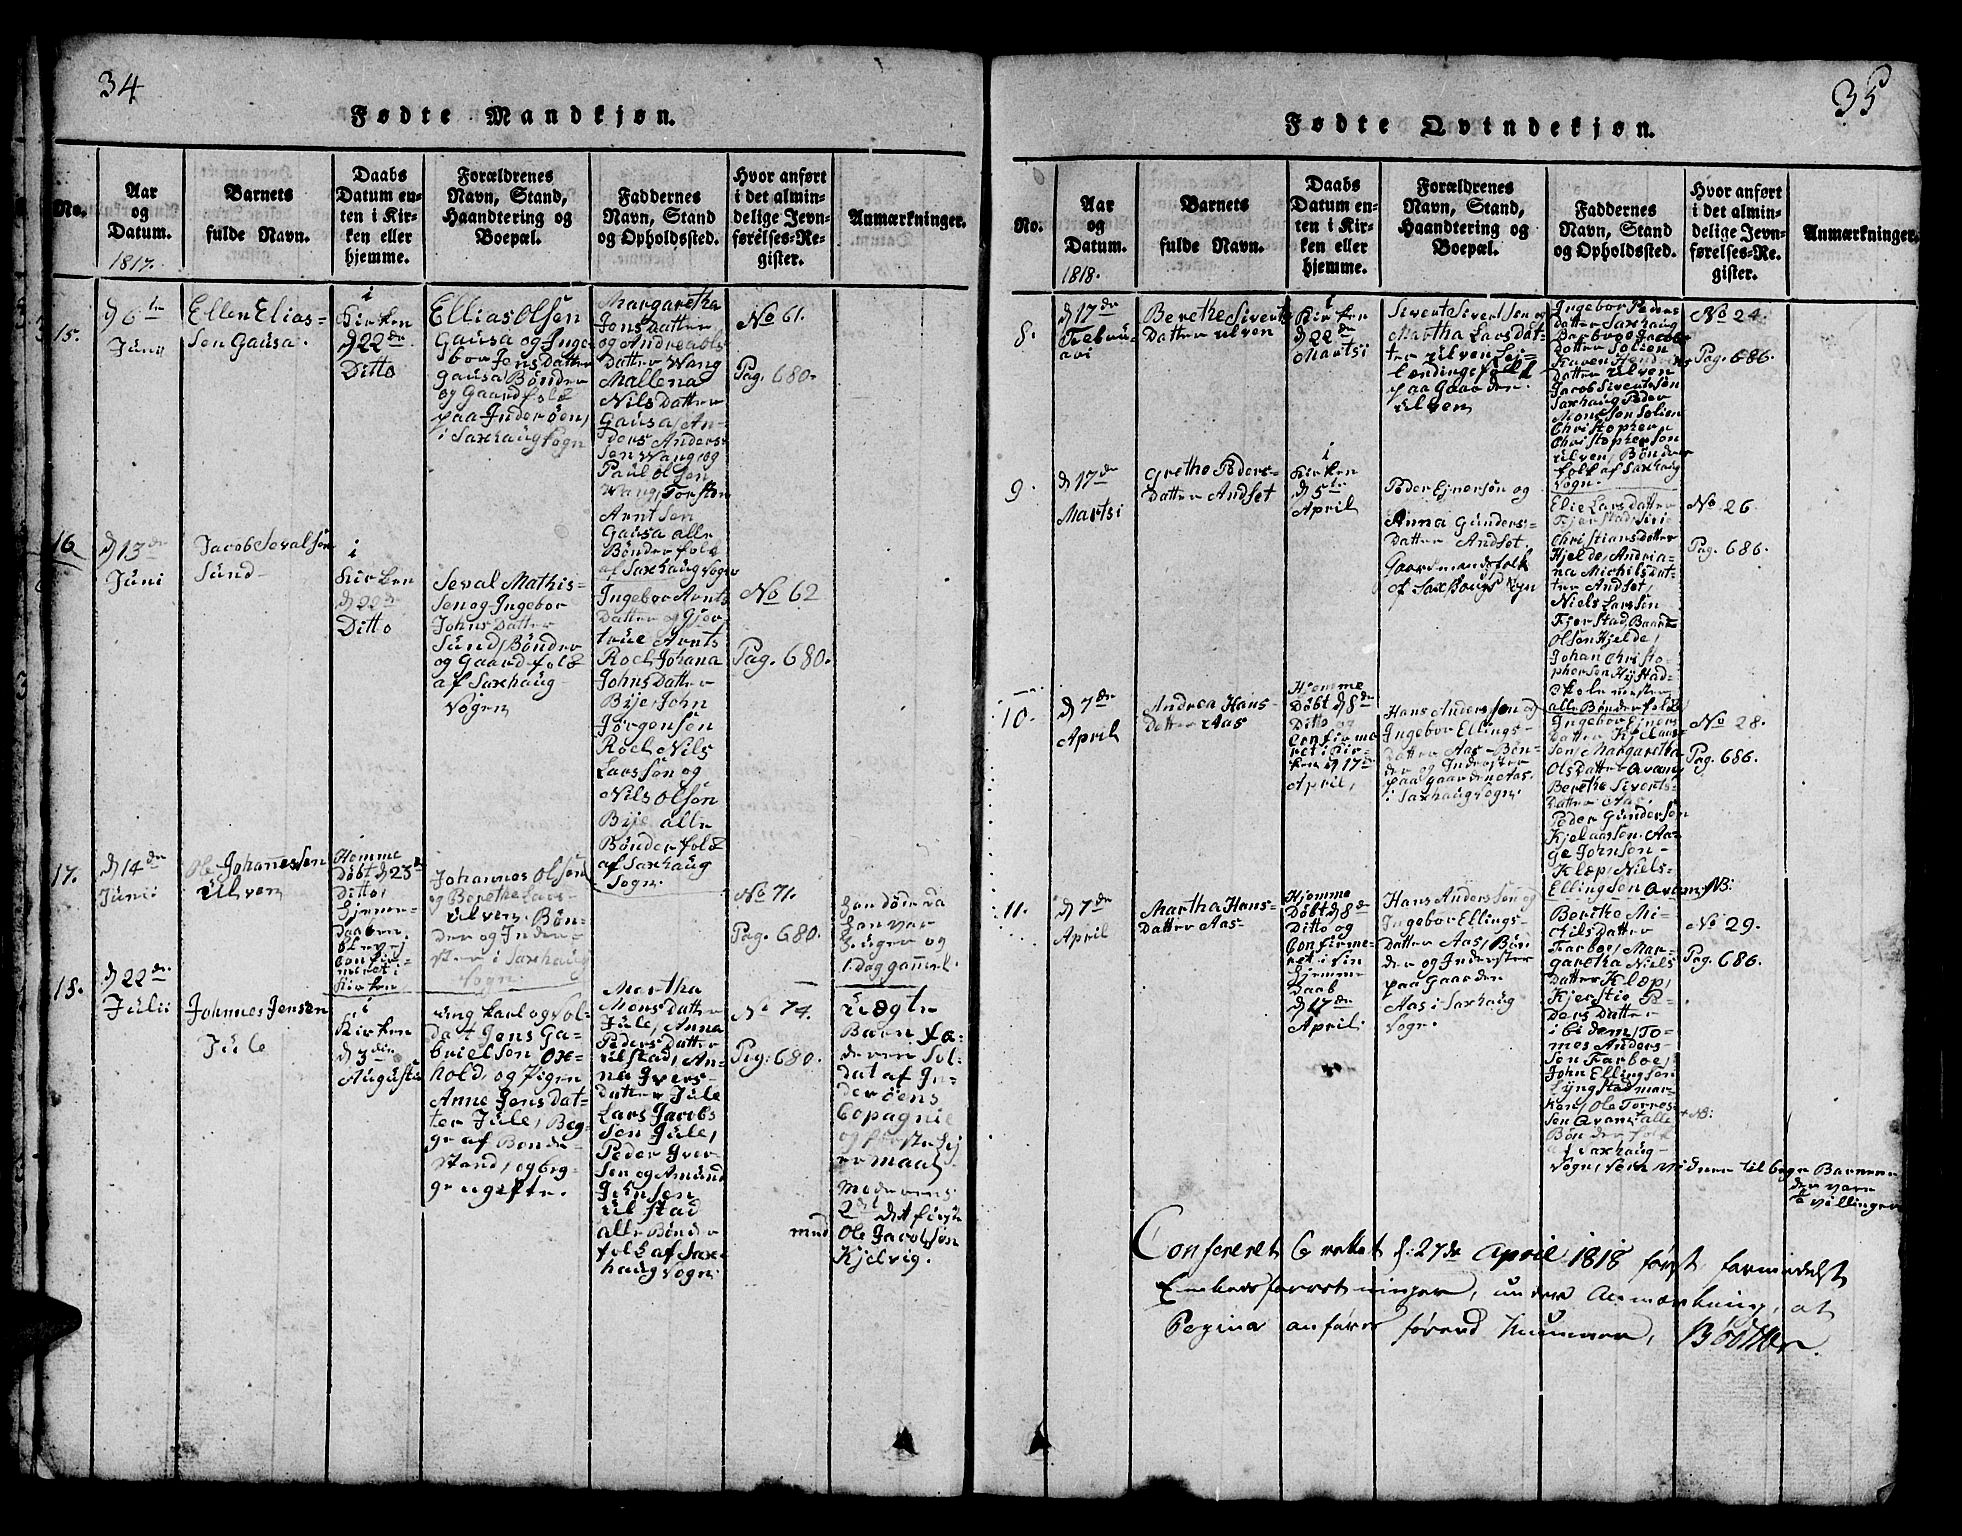 34
Fødte Mandkjøn.
No.
Aar
og
Datum.
1817.
Barnets
fulde Navn.
Daabs
Datum en-
ten i Kir-
ken eller
hjemme.
Forældrenes
Navn, Stand,
Haandtering og
Boepæl.
Faddernes
Navn, Stand
og Opholdssted.
Hvor anført
i det almin-
delige Jevn-
førelses-Re-
gister.
Anmærkninger.
15.
d 6te
Junii
Ellen Elias-
sen Gausa.
i
Kirken
d 22de
Ditto
Ellias Olsen
Gausa og Inge
bor Jens Datter
Gausa Bønder
og Gaardfolk
paa Inderøen,
i Saxhaug Sogn
Margaretha
Jens Datter
og Andrea Ols
Datter Wang
Mallena
Nils Datter
Gausa, An-
ders Anders-
sen Wang og
Paul Olsen
Wang, Torsten
Arntsen
Gausa alle
Bønderfolk
af Saxhaug Sogn
No 61.
Pag. 680.
16
d 13de
Juni
Jacob Sevalsen
Sund
i
Kirken
d 22de
Ditto
Seval Mathis-
sen og Ingebor
Johns Datter
Sund, Bønder
og Gaardfolk
af Saxhaug-
Sogen
Ingebor Arnts
Datter og Gjer
true Arnts
Roel, Johana
Johns Datter
Bije, John
Jørgensen
Roel, Nils
Larssen og
Nils Olsen
Bije alle
Bønderfolk
af Saxhaug
Sogn.
No 62
Pag. 680.
17.
d 14de
Junii
Ole Johanessen
Ulven
Hemme
Døbt d 23de
Ditto,
Hjemme-
daaben
blev
Confir-
meret i
Kirken
Johannes Olsen
og Berethe Lars-
Ulven. Bøn-
der og Inder-
ster i Saxhaug
Sogn.
No 71.
Pag. 680.
han døde da
han var
1 uger og
1 Dag gammel.
18.
d 22de
Julii
Johnes Jensen
Jule
i
Kirken
d 3die
Augusti
ung karl og Sol-
dat Jens Ga-
brielsen Ox-
hold, og Pigen
Anne Jens Dat-
ter Jule, Beg-
ge af Bonde-
stand, og beg-
ge ugifte.
Martha
Mons Datter
Jule, Anna
Peders Datter
Ulstad, An-
na Ivers-
datter Jule
Lars Jacobs
sen Jule,
Peder Iver
sen og Amund
Johnsen
Ulstad
alle Bønde
folk af Sax-
haug Sogn.
No 74.
Pag: 680.
Uægte
Barn Fa-
deren Sol-
dat af In-
derøens
Copagnie
og første Lej
ermaal.
Moderens
2det det første
med Ole Jacobsen
Kjelvig.
35
Fødte Qvindekjøn.
No.
Aar
og
Datum.
1818.
Barnets
fulde Navn.
Daabs
Datum en-
ten i Kir-
ken eller
hjemme.
Forældrenes
Navn, Stand,
Haandtering og
Boepæl.
Faddernes
Navn, Stand
og Opholdssted.
Hvor anført
i det almin-
delige Jevn-
førelses-Re-
gister.
Anmærkninger.
8.
d 17de
Februu
ari
Berethe Siverts
Datter Ulven
i
Kirken
d 22de
Martsi
Sivert Sivertsen og
Martha Lars Dat-
ter Ulven Lej-
lændingsfolk
paa Gaarden
Ulven
Ingebor Peders
Datter Saxhaug
Barbroe Jacobs
Datter Solien
Karen Hendriks
Datter Ulven
Jacob Sivertsen
Saxhaug Peder
Monssen Solien
Christopher
Christophersen
Ulven, Bønder
folk af Saxhaug
Sogn.
No 24.
Pag. 686.
9.
d 17de
Martsi
Grethe Peders-
Datter Andset
i
Kirken
d 5te
April
Peder Ejnersen og
Anna Gunders-
Datter Andset.
Gaardmandsfolk
af Saxhougs Sogn
Elie Lars Datter
Fjerstad, Siri
Christians Datter
Hjelde, Andria-
na Michils Dat-
ter Andset,
Niels Larsen
Fjerstad, Baart
Olsen Hjelde,
Johan Christo-
phersen Hystad
Skolemester
alle Bønderfolk
No 26.
Pag. 686.
10.
d 7de
April
Andrea Hans-
Datter Aas
Hjemme
Døbt d 8de
Ditto og
Confirme
ret i Kir-
ken d 17de
April,
Hans Anderssen og
Ingebor Ellings-
Datter Aas-Bøn-
der og Inderster
paa Gaarden Aas.
i Saxhaug Sogn.
Ingebor Ejners
Datter Kjelaas-
sen, Margaretha
Ols Datter Qvam,
Berethe Siverts-
Datter Aas,
Peder Gundersen
Kjelaassen. Aa-
ge Johnsen-
Klæp, Niels-
Ellingsen Qvam NB:
No 28.
Pag. 686.
11.
d 7de
April
Martha Hans-
Datter Aas-
Hjemme
Døbt d 8de
Ditto og
Confirme-
ret i Sin
Hjemme
Daab
d 17de
April.
Hans Anderssen og
Ingebor Ellings-
Datter Aas, Bøn
der og Inderster
paa Gaarden
Aas i Saxhaug
Sogn.
Berithe Mi-
chils Datter
Farboe, Mar-
garetha Niels
Datter Klæp,
Kjerstie Pe-
ders Datter
ibidem, To-
mes Anders-
sen Farboe,
John Ellingsen
Lyngstadmar-
ken, Ole Torres-
sen Qvam alle
Bønderfolk
af Saxhaug-
Sogn, som vidner til begge Barnene
der vare
Tvillinger
No 29.
Pag. 686.
NB:
Confereret & rettet d: 27de April 1818 først formedelst
Embedsforretninger, under Anmærkning, at
Pagina anføres førend Numeren, Bødtker.